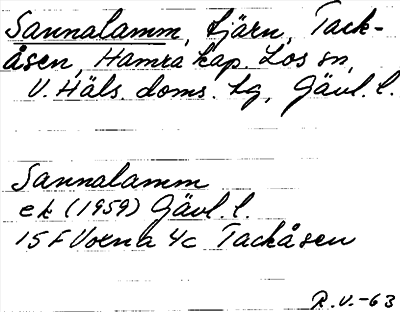 Sannalamm, tjärn, Tack-
åsen, Hamra kap. Los sn,
V. Häls. doms. lg, Gävl. l.
Sannalamm
ek (1959) Gävl. l.
15 F Voxna 4c Tackåsen
R.V.-63